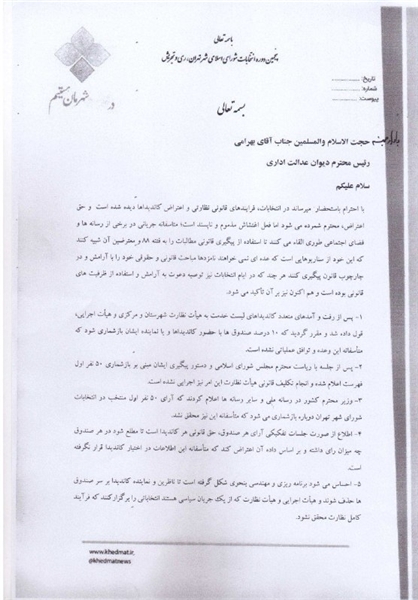 باسمه تعالی
پنجمین دوره انتخابات شورای اسلامی شهر تهران، ری و تجریش
در شهرمان مقیم
تاریخ:
شماره:
پیوست:
بسمه تعالی
حجت الاسلام والمسلمین جناب آقای بهرامی
رئیس محترم دیوان عدالت اداری
سلام علیکم
با احترام باستحضار میرساند در انتخابات، فرایندهای قانونی نظارتی و اعتراض کاندیداها دیده شده است و حق
اعتراض، محترم شمرده می شود اما فعل اغتشاش مذموم و ناپسند است؛ متاسفانه جریانی در برخی از رسانه ها و
فضای اجتماعی طوری القاء می کنند تا استفاده از پیگیری قانونی مطالبات را به فتنه ۸۸ و معترضین آن شبیه کنند
که این خود از سناریوهایی است که عده ای نمی خواهند نامزدها مباحث قانونی و حقوقی خود را با آرامش و در
چارچوب قانون پیگیری کنند هر چند که در ایام انتخابات نیز توصیه دعوت به آرامش و استفاده از ظرفیت های
قانونی بوده است و هم اکنون نیز بر آن تأکید می شود.
۱- پس از رفت و آمدهای متعدد کاندیداهای لیست خدمت به هیأت نظارت شهرستان و مرکزی و هیأت اجرایی،
قول داده شد و مقرر گردید که ۱۰ درصد صندوق ها با حضور کاندیداها و یا نماینده ایشان بازشماری شود که
متأسفانه این وعده و توافق عملیاتی نشده است.
۲- پس از جلسه با ریاست محترم مجلس شورای اسلامی و دستور پیگیری ایشان مبنی بر بازشماری ۵۰ نفر اول
فهرست اعلام شده و انجام تکلیف قانونی هیأت نظارت این امر نیز اجرایی نشده است.
۳- وزیر محترم کشور در رسانه ملی و سایر رسانه ها اعلام کردند که آرای ۵۰ نفر اول منتخب در انتخابات
شورای شهر تهران دوباره بازشماری می شود که متأسفانه این نیز محقق نشد.
۴- اطلاع از صورت جلسات تفکیکی آرای هر صندوق، حق قانونی هر کاندیدا است تا مطلع شود در هر صندوق
چه میزان رای داشته و بر اساس داده آن اعتراض کند که متاسفانه این اطلاعات در اختیار کاندیدا قرار نگرفته
است.
۵- احساس می شود برنامه ریزی و مهندسی پنجری شکل گرفته است تا ناظرین و نماینده کاندیدا بر سر صندوق
ها حذف شوند و هیأت اجرایی و هیأت نظارت که از یک جریان سیاسی هستند انتخاباتی را برگزار کنند که فرآیند
کامل نظارت محقق نشود.
www.khedmat.ir
@khedmatnews